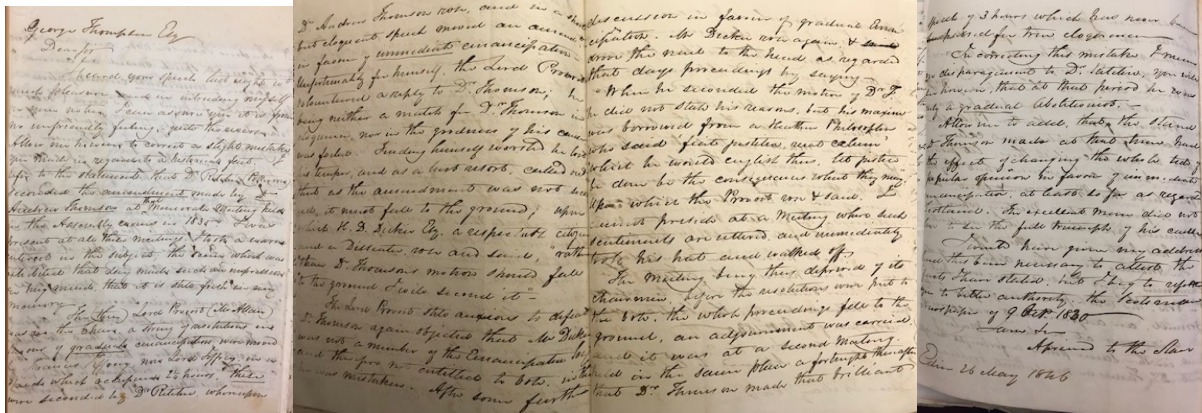 George Thompson Esq
Dear Sir
I heard your speech last night with
much pleasure and in intruding myself
on your notice I am sure it is from
no unfriendly feeling
Allow me however to correct a slight mistake
you made in regard to a historical fact. I
refer to the statement that Dr Ritchie
seconded the amendment made by Dr
Andrew Thomson at the memorable Meeting held
in the Assembly rooms in 1830. I was
present at all these meetings & took a warm
interest in the subject, the scene which was
exhibited that day made such an impression
on my mind, that it is still fresh in my
memory.
The then Lord Provost, Mr Allan
was in the chair, a string of resolutions in
favour of gradual emancipation were moved
by Francis Jeffrey, now Lord Jeffrey, in a
speech which occupied 2½ hours, these
were seconded by Dr Ritchie, whereupon
Dr Andrew Thomson rose, and in a short
but eloquent speech moved an amendment
in favour of immediate emancipation.
Unfortunately for himself, the Lord Provost
volunteered a reply to Dr Thomson; he
being neither a match for Dr Thomson in
eloquence, nor in the goodness of his cause
was foiled. Finding himself worsted he lost
his temper, and as a last resort, called out
that as the amendment was not second-
ed, it must fall to the ground; upon
which H. D. Dickie Esq, a respectable citizen
and a Dissenter rose and said, "rather
than Dr Thomson's motion should fall
to the ground I will second it" –
The Lord Provost still anxious to defeat
Dr Thomson again objected that Mr Dickie
was not a member of the Emancipation Soc.
and therefore not entitled to vote, in this
he was mistaken. After some further
discussion in favour of gradual Eman
cipation. Mr Dickie rose again &
drove the nail to the head as regarded
that days proceedings by saying –
"When he seconded the motion of Dr T.
he did not state his reasons, but his maxim
was borrowed from a Heathen Philosopher
who said fiat justitia, ruat cœlum,
which he would english thus, let justice
be done be the consequences what they may,
upon which the Provost rose & said. I
cannot preside at a Meeting where such
sentiments are uttered, and immediately
took his hat and walked off.
The meeting being thus deprived of its
Chairman, before the resolutions were put to
the vote, the whole proceedings fell to the
ground, an adjournment was carried,
and it was at a second Meeting
held in the same place a fortnight thereafter
that Dr Thomson made that brilliant
speech of 3 hours which has never been
surpassed for true eloquence –
In correcting this mistake I mean
no disparagement to Dr. Ritchie, you will
however, that at that period he was
only a gradual abolitionist. –
Allow me to add, that the stand
Dr Thomson made at that time had
the effect of changing the whole tide of
popular opinion in favour of immediate
emancipation at least so far as regards
Scotland. The excellent man did not
live to see the full triumph of his cause
I would have given my address
had this been necessary to attest the
facts I have stated, but I beg to refer
you to better authority, the Scotsman
newspaper of 9 Octr 1830
I am Sir
A friend to the Slave
Edinr 26 May 1846